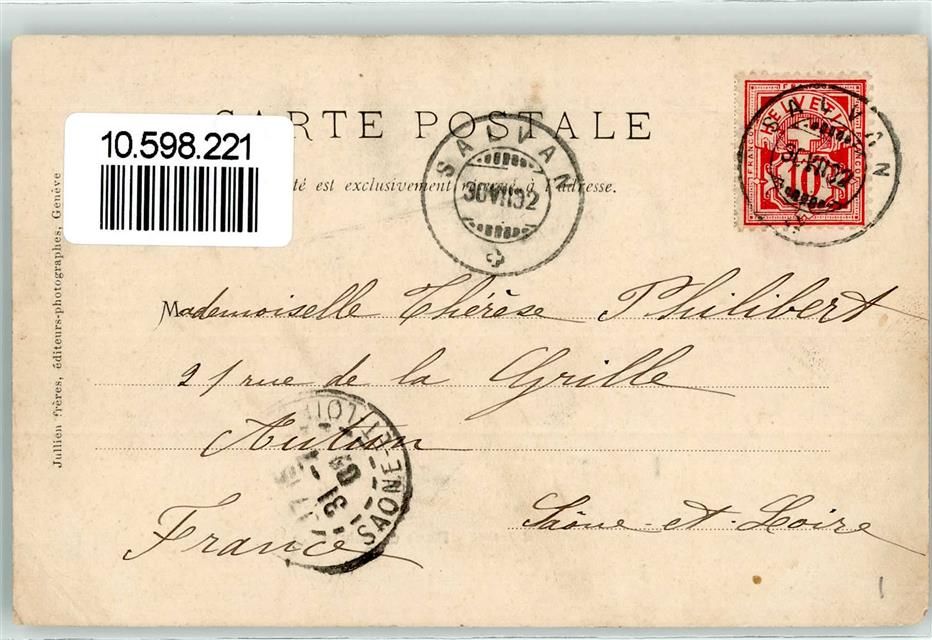 CARTE POSTALE
10.598.221
té est exclusivement réservé à l'adresse.
SALVAN
30 VII 02
HELVETIA
FRANCO
10
SALVAN
30 VII 02
Jullien frères, éditeurs-photographes, Genève
Mademoiselle Thérèse Philibert
21 rue de la Grille
Autun
Saône-et-Loire
France
SAONE-ET-LOIRE
31